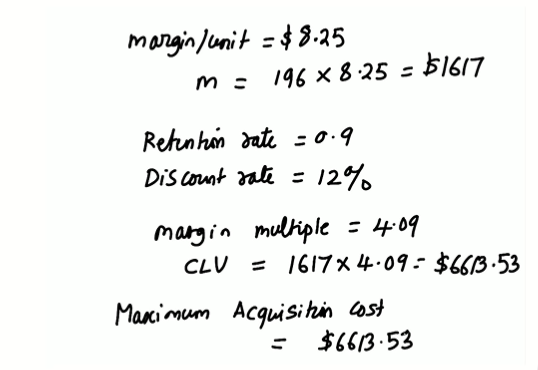 margin/unit = $8.25
m = 196 × 8.25 = $1617
Retention rate = 0.9
Discount rate = 12%
margin multiple = 4.09
CLV = 1617 × 4.09 = $6613.53
Maximum Acquisition cost
= $6613.53